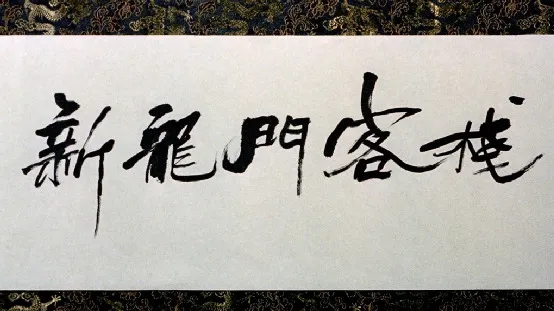 新龍門客栈